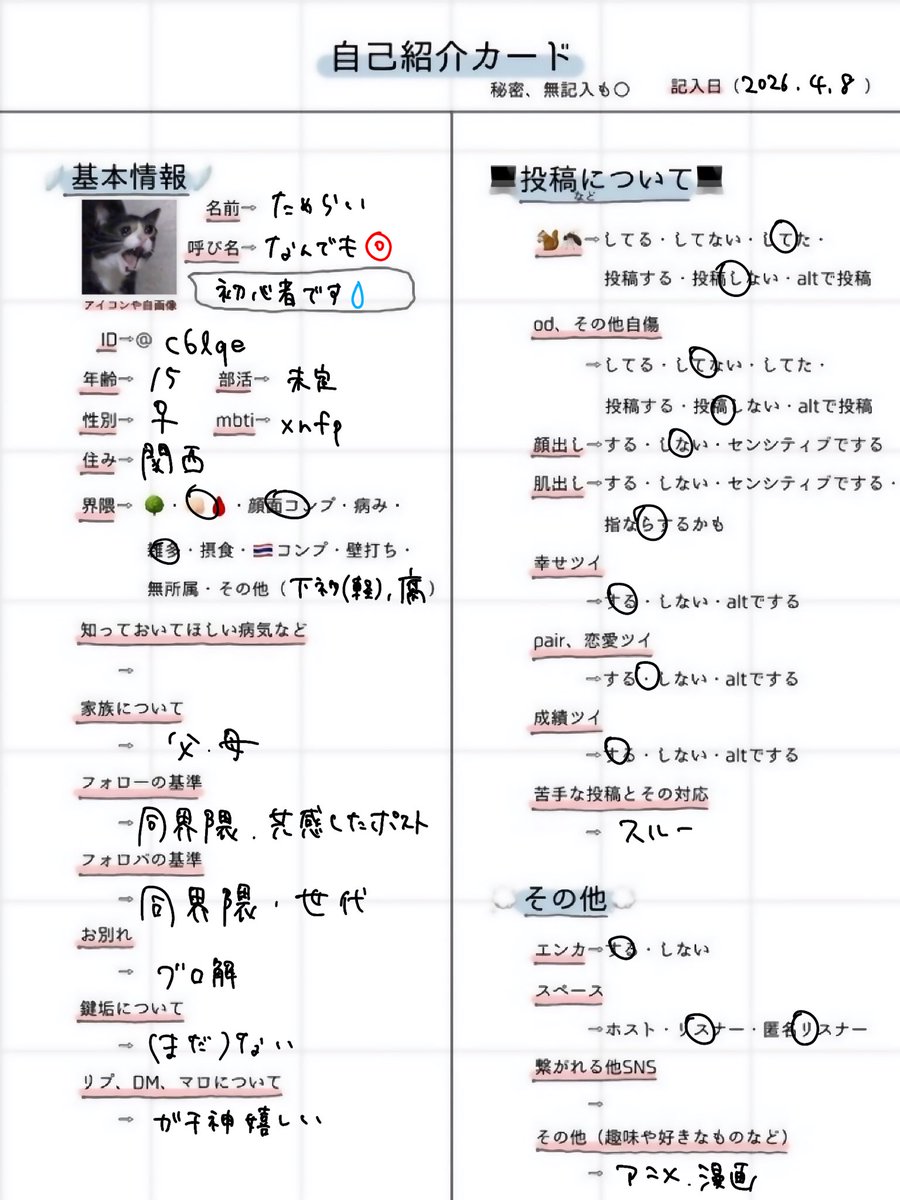 自己紹介カード
秘密、無記入も○ 記入日（2026.4.8）
基本情報
名前⇨ ためらい
呼び名⇨ なんでも◎
初心者です💧
アイコンや自画像
ID⇨@ c6lqe
年齢⇨ 15 部活⇨ 未定
性別⇨ ♀ mbti⇨ xnfp
住み⇨ 関西
界隈⇨🌳・🩸・顔面コンプ・病み・
雑多・摂食・🇹🇭コンプ・壁打ち・
無所属・その他（下ネタ(軽),腐）
知っておいてほしい病気など
⇨
家族について
⇨ 父.母
フォローの基準
⇨同界隈.共感したポスト
フォロバの基準
⇨同界隈・世代
お別れ
⇨ ブロ解
鍵垢について
⇨ (まだ)ない
リプ、DM、マロについて
⇨ ガチ神嬉しい
💻投稿について💻
など
🐿️🦟⇨してる・してない・してた・
投稿する・投稿しない・altで投稿
od、その他自傷
⇨してる・してない・してた・
投稿する・投稿しない・altで投稿
顔出し⇨する・しない・センシティブでする
肌出し⇨する・しない・センシティブでする・
指ならするかも
幸せツイ
⇨する・しない・altでする
pair、恋愛ツイ
⇨する・しない・altでする
成績ツイ
⇨する・しない・altでする
苦手な投稿とその対応
⇨ スルー
その他
エンカ⇨する・しない
スペース
⇨ホスト・リスナー・匿名リスナー
繋がれる他SNS
⇨
その他（趣味や好きなものなど）
⇨ アニメ.漫画